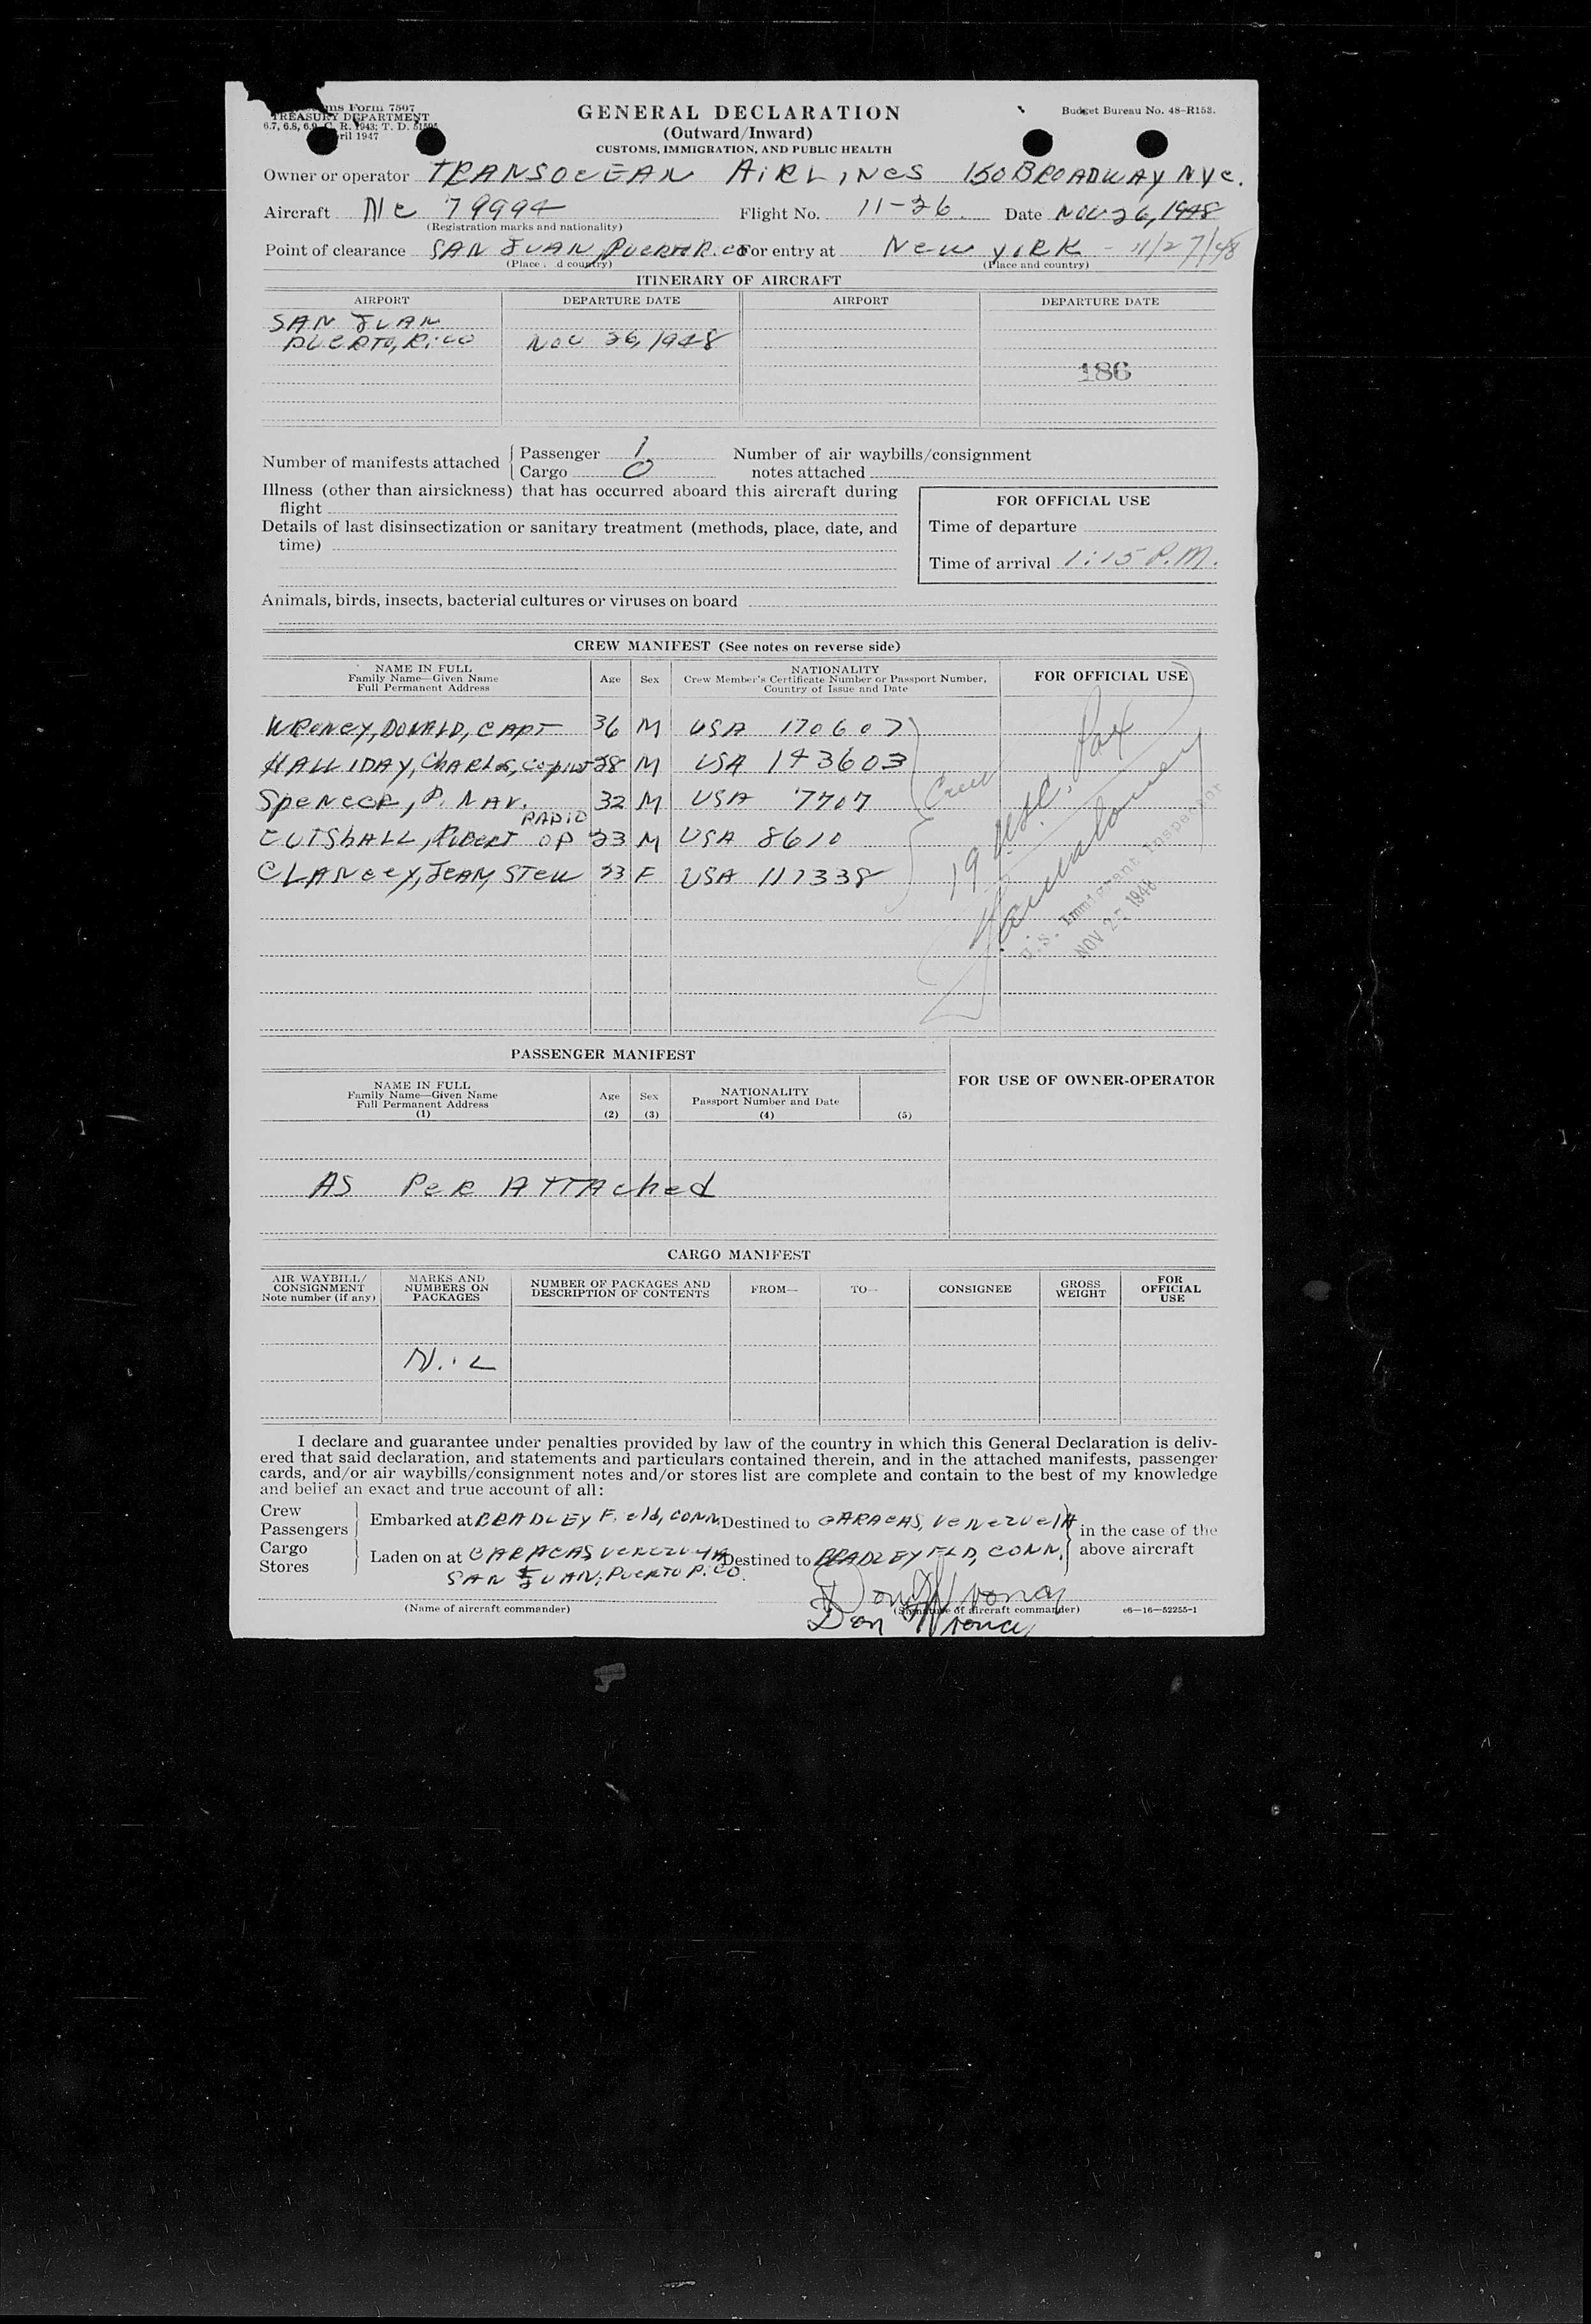 ms Form 7507
TREASURY DEPARTMENT
6.7, 6.8, 6.9, C. R. 1943; T. D. 51595
ril 1947
GENERAL DECLARATION
(Outward/Inward)
CUSTOMS, IMMIGRATION, AND PUBLIC HEALTH
Budget Bureau No. 48-R153.
Owner or operator TRANSOCEAN AIRLINES 150 BROADWAY NYC.
Aircraft NC 79994 Flight No. 11-26 Date NOV 26, 1948
(Registration marks and nationality)
Point of clearance SAN JUAN, PUERTO RICO For entry at NEW YORK - 11/27/48
(Place d country) (Place and country)
ITINERARY OF AIRCRAFT
AIRPORT DEPARTURE DATE AIRPORT DEPARTURE DATE
SAN JUAN
PUERTO, RICO NOV 26, 1948
186
Number of manifests attached { Passenger 1 Number of air waybills/consignment
Cargo 0 notes attached
Illness (other than airsickness) that has occurred aboard this aircraft during
flight
FOR OFFICIAL USE
Details of last disinsectization or sanitary treatment (methods, place, date, and
time)
Time of departure
Time of arrival 1:15 P.M.
Animals, birds, insects, bacterial cultures or viruses on board
CREW MANIFEST (See notes on reverse side)
NAME IN FULL
Family Name—Given Name
Full Permanent Address
Age Sex
NATIONALITY
Crew Member's Certificate Number or Passport Number,
Country of Issue and Date
FOR OFFICIAL USE
WRONEY, DONALD, CAPT 36 M USA 170607
HALLIDAY, CHARLES, COPILOT 28 M USA 143603
SPENCER, P. NAV. 32 M USA 7707
RADIO
CUTSHALL, ROBERT OP 23 M USA 8610
CLANCEY, JEAN, STEW 23 F USA 117338
Crew
19 USC. Pax
U.S. Immigrant Inspector
NOV 27 1948
PASSENGER MANIFEST
NAME IN FULL
Family Name—Given Name
Full Permanent Address
(1)
Age
(2)
Sex
(3)
NATIONALITY
Passport Number and Date
(4)
(5)
FOR USE OF OWNER-OPERATOR
AS PER ATTACHED
CARGO MANIFEST
AIR WAYBILL/
CONSIGNMENT
Note number (if any)
MARKS AND
NUMBERS ON
PACKAGES
NUMBER OF PACKAGES AND
DESCRIPTION OF CONTENTS
FROM—
TO—
CONSIGNEE
GROSS
WEIGHT
FOR
OFFICIAL
USE
NIL
I declare and guarantee under penalties provided by law of the country in which this General Declaration is deliv-
ered that said declaration, and statements and particulars contained therein, and in the attached manifests, passenger
cards, and/or air waybills/consignment notes and/or stores list are complete and contain to the best of my knowledge
and belief an exact and true account of all:
Crew
Passengers
Cargo
Stores
Embarked at BRADLEY Field, CONN. Destined to CARACAS, VENEZUELA
in the case of the
above aircraft
Laden on at CARACAS VENEZUELA Destined to BRADLEY FLD, CONN.
SAN JUAN, PUERTO RICO.
(Name of aircraft commander)
(Signature of aircraft commander)
c6—16—52255-1